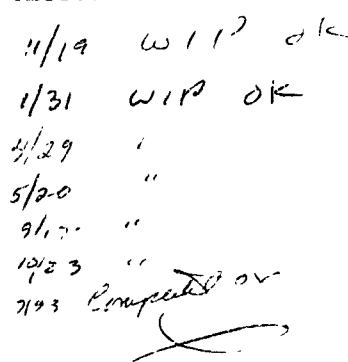 11/19 WIP ok
1/31 WIP OK
4/29 "
5/20 "
"
10/23 "
7/93 Completed ok